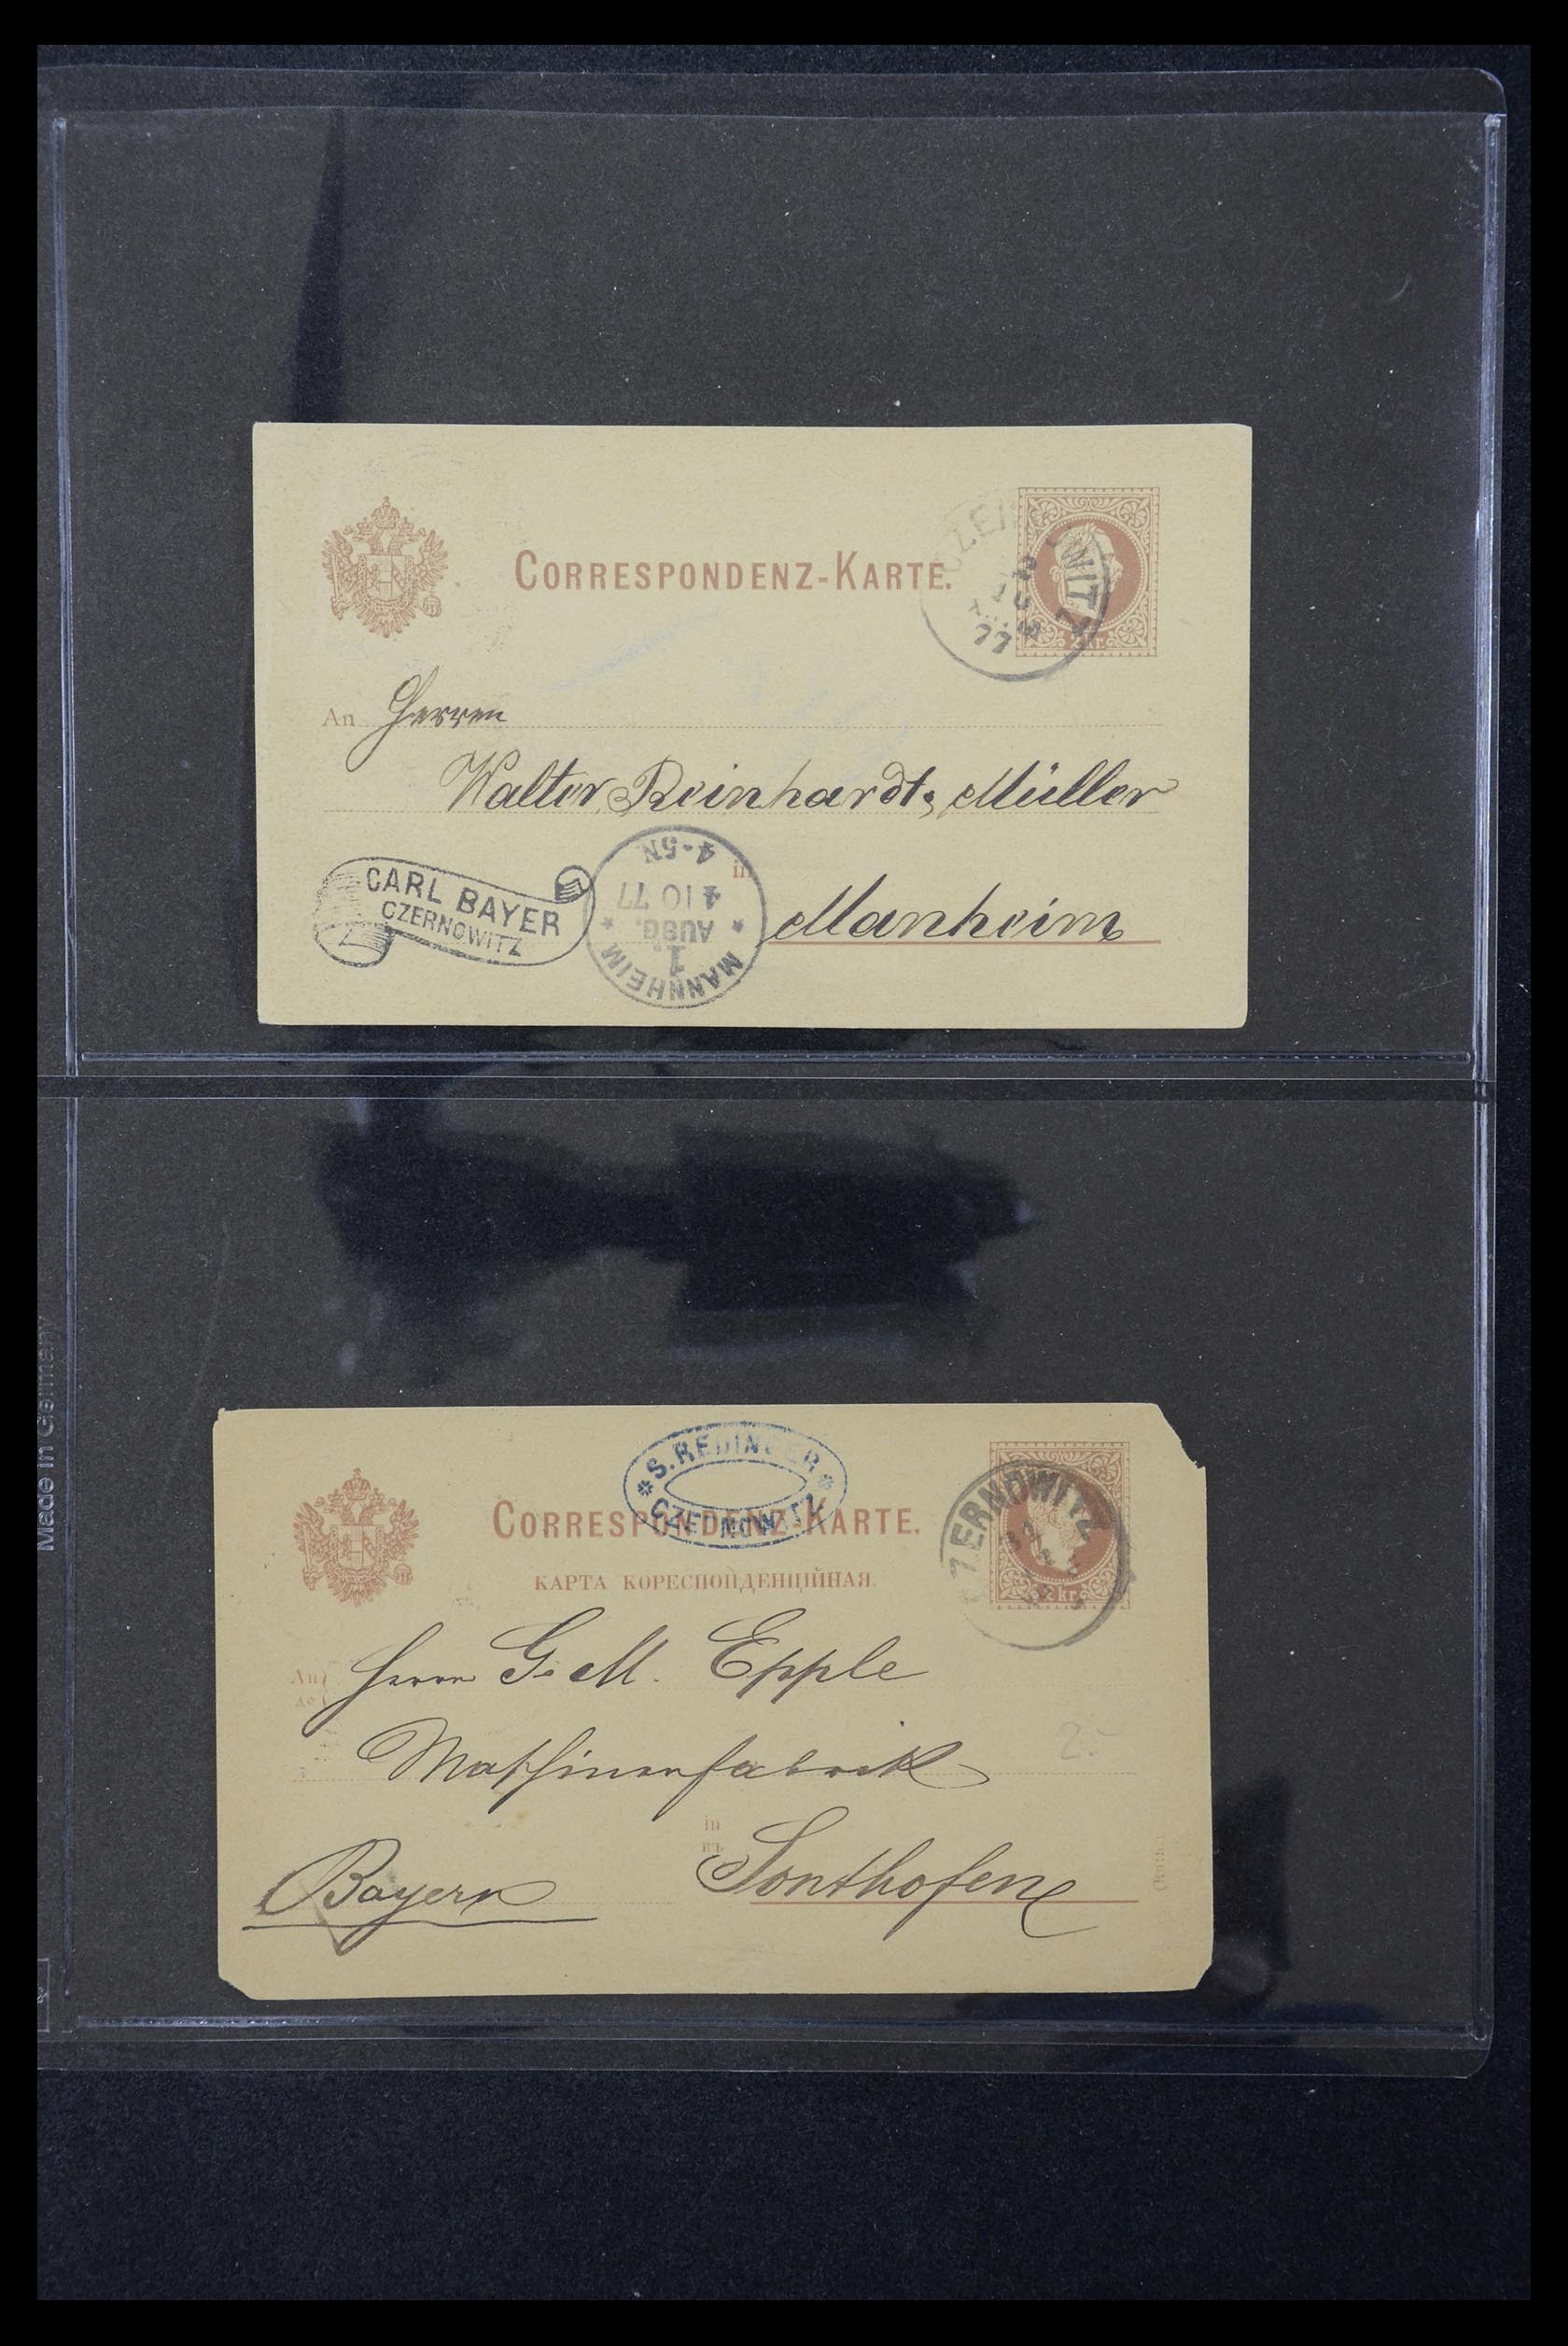 CORRESPONDENZ-KARTE.
WITZ
77
2 kr.
An Herren
Walter Reinhardt & Müller
in
Manheim
CARL BAYER
CZERNOWITZ
MANNHEIM
1.
AUSG.
4 10 77
4-5N
S. REDINGER
CZERNOWITZ
CORRESPONDENZ-KARTE.
КАРТА КОРЕСПОНДЕНЦІЙНАЯ.
CZERNOWITZ
2 kr.
An
до
Herrn G. M. Epple
Maschinenfabrik
2.-
in
въ
Sonthofen
Bayern
(Ruth.)
Made in Germany